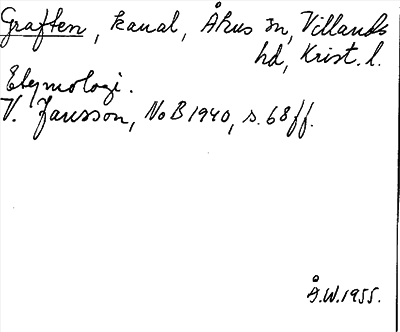 Graften, kanal, Åhus sn, Villands
hd, Krist. l.
Etymologi.
V. Jansson, NoB 1940, s. 68 ff.
Å.W. 1955.